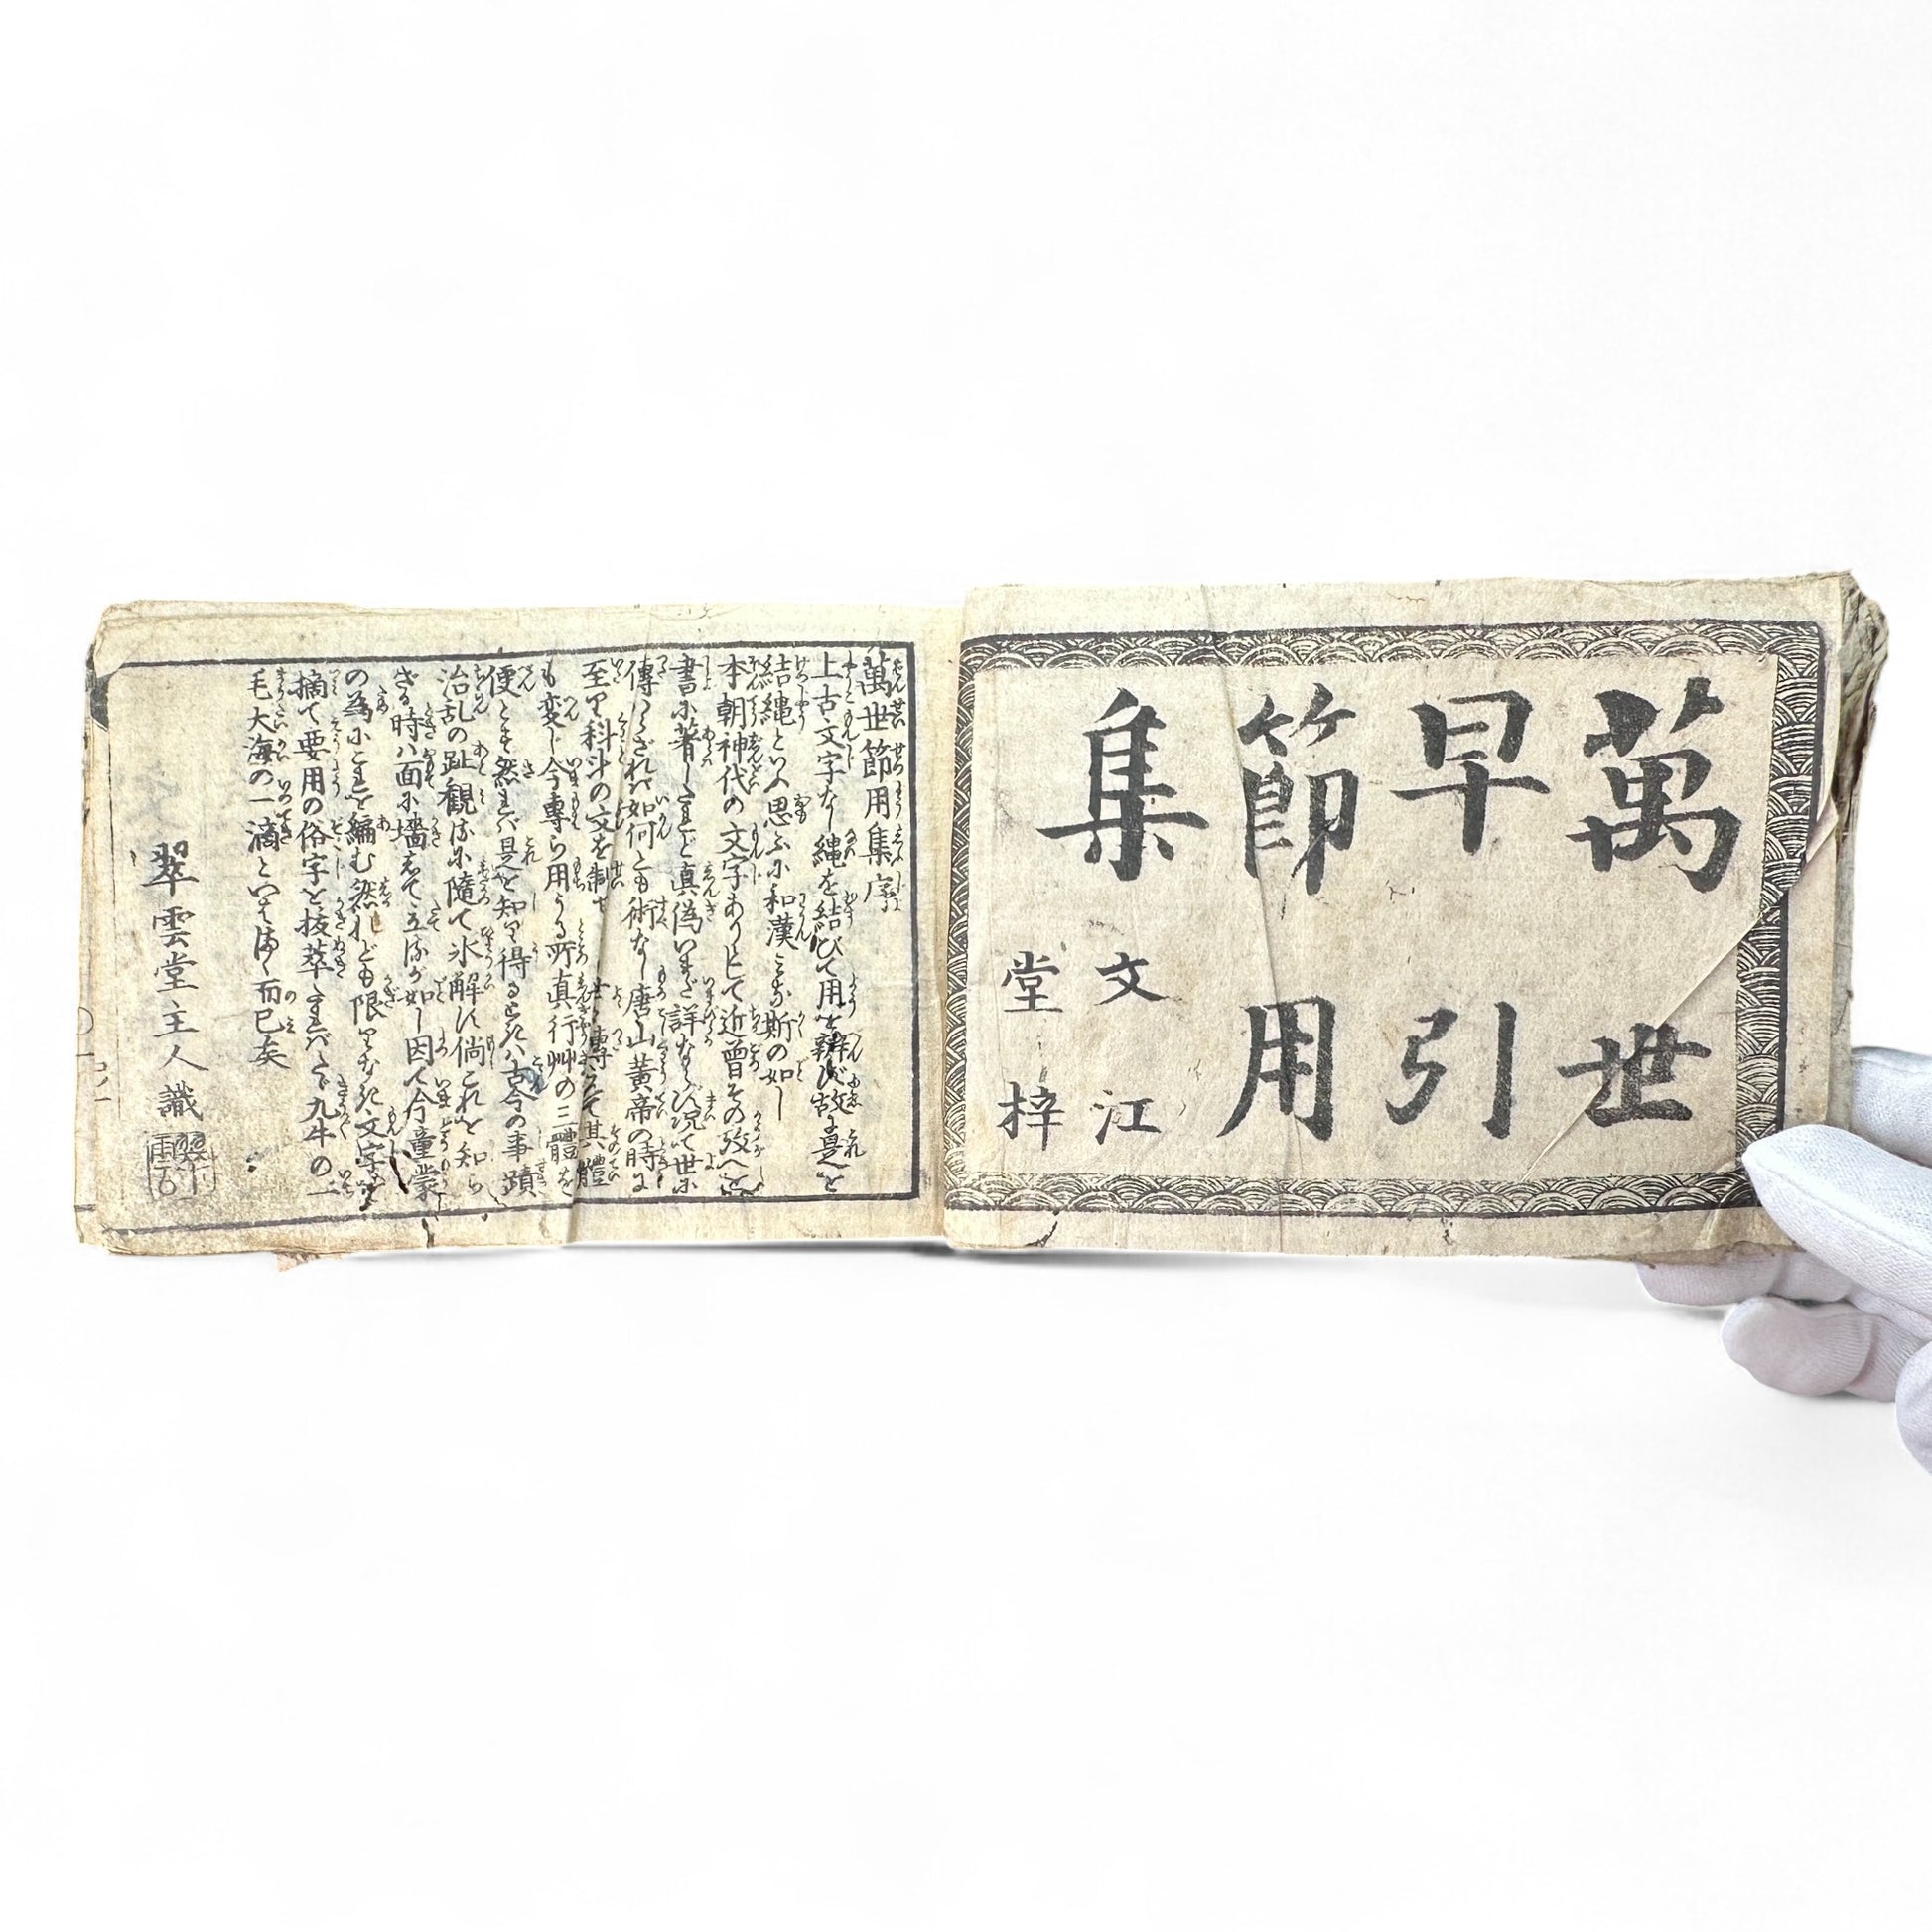 萬世
早引
節用
集
文江
堂梓
萬世節用集序
上古文字なし縄を結びて用を辨ず故に是を
結縄といふ思ふに和漢ともに斯の如し
本朝神代の文字ありとして近曽その攷へを
書に著したれど真偽いまだ詳ならず況て世に
傳はらざれば如何とも術なし唐山黄帝の時に
至り科斗の文を制せ
も変じ今専ら用うる所真行艸の三體を
便とす然れバ是を知り得るときハ古今の事蹟
治乱の趾観るに隨て氷解に倘これを知ら
ざる時ハ面に墻して立るが如し因て今童蒙
の為にこれを編む然れども限りなき文字を
摘て要用の俗字を抜萃すれバたゞ九牛の一
毛大海の一滴といはまく而已矣
翠雲堂主人識